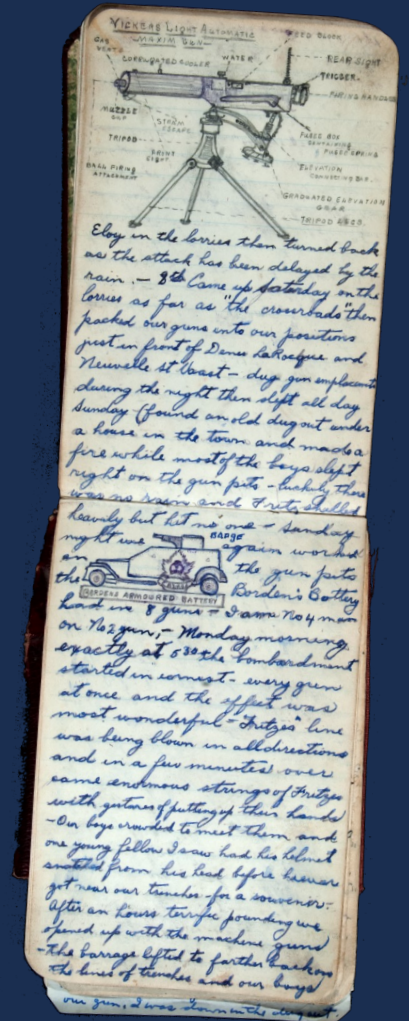 VICKERS LIGHT AUTOMATIC
MAXIM GUN
GAS VENTS
CORRUGATED COOLER
WATER
FEED BLOCK
REAR SIGHT
TRIGGER
FIRING HANDLES
MUZZLE CUP
STEAM ESCAPE
TRIPOD
FRONT SIGHT
BALL FIRING ATTACHMENT
FUSEE BOX CONTAINING FUSEE SPRING
ELEVATION
GRADUATED ELEVATION GEAR
TRIPOD LEGS.
Eloy in the lorries then turned back
as the attack has been delayed by the
rain. — 8th Came up Saturday on the
lorries as far as "the crossroads" then
packed our guns into our positions
just in front of and
Neuville St Vaast — dug gun emplacements
during the night then slept all day
Sunday (found an old dugout under
a house in the town and made a
fire while most of the boys slept
right on the gun pits — luckily there
was no rain and Fritz shelled
heavily but hit no one — Sunday
night we again worked
BADGE
on the gun pits
the Borden's Battery
BORDENS ARMOURED BATTERY
had in 8 guns — I am No 4 man
on No 2 gun, — Monday morning
exactly at 5 30 the bombardment
started in earnest — every gun
at once and the effect was
most wonderful — "Fritzes" line
was being blown in all directions
and in a few minutes over
came enormous strings of Fritzes
with gestures of putting up their hands
— Our boys crowded to meet them and
one young fellow I saw had his helmet
snatched from his head before he ever
got near our trenches — for a souvenir —
After an hours terrific pounding we
opened up with the machine guns
— the barrage lifted to farther back on
the lines of trenches and our boys
our gun, I was down in the dugout